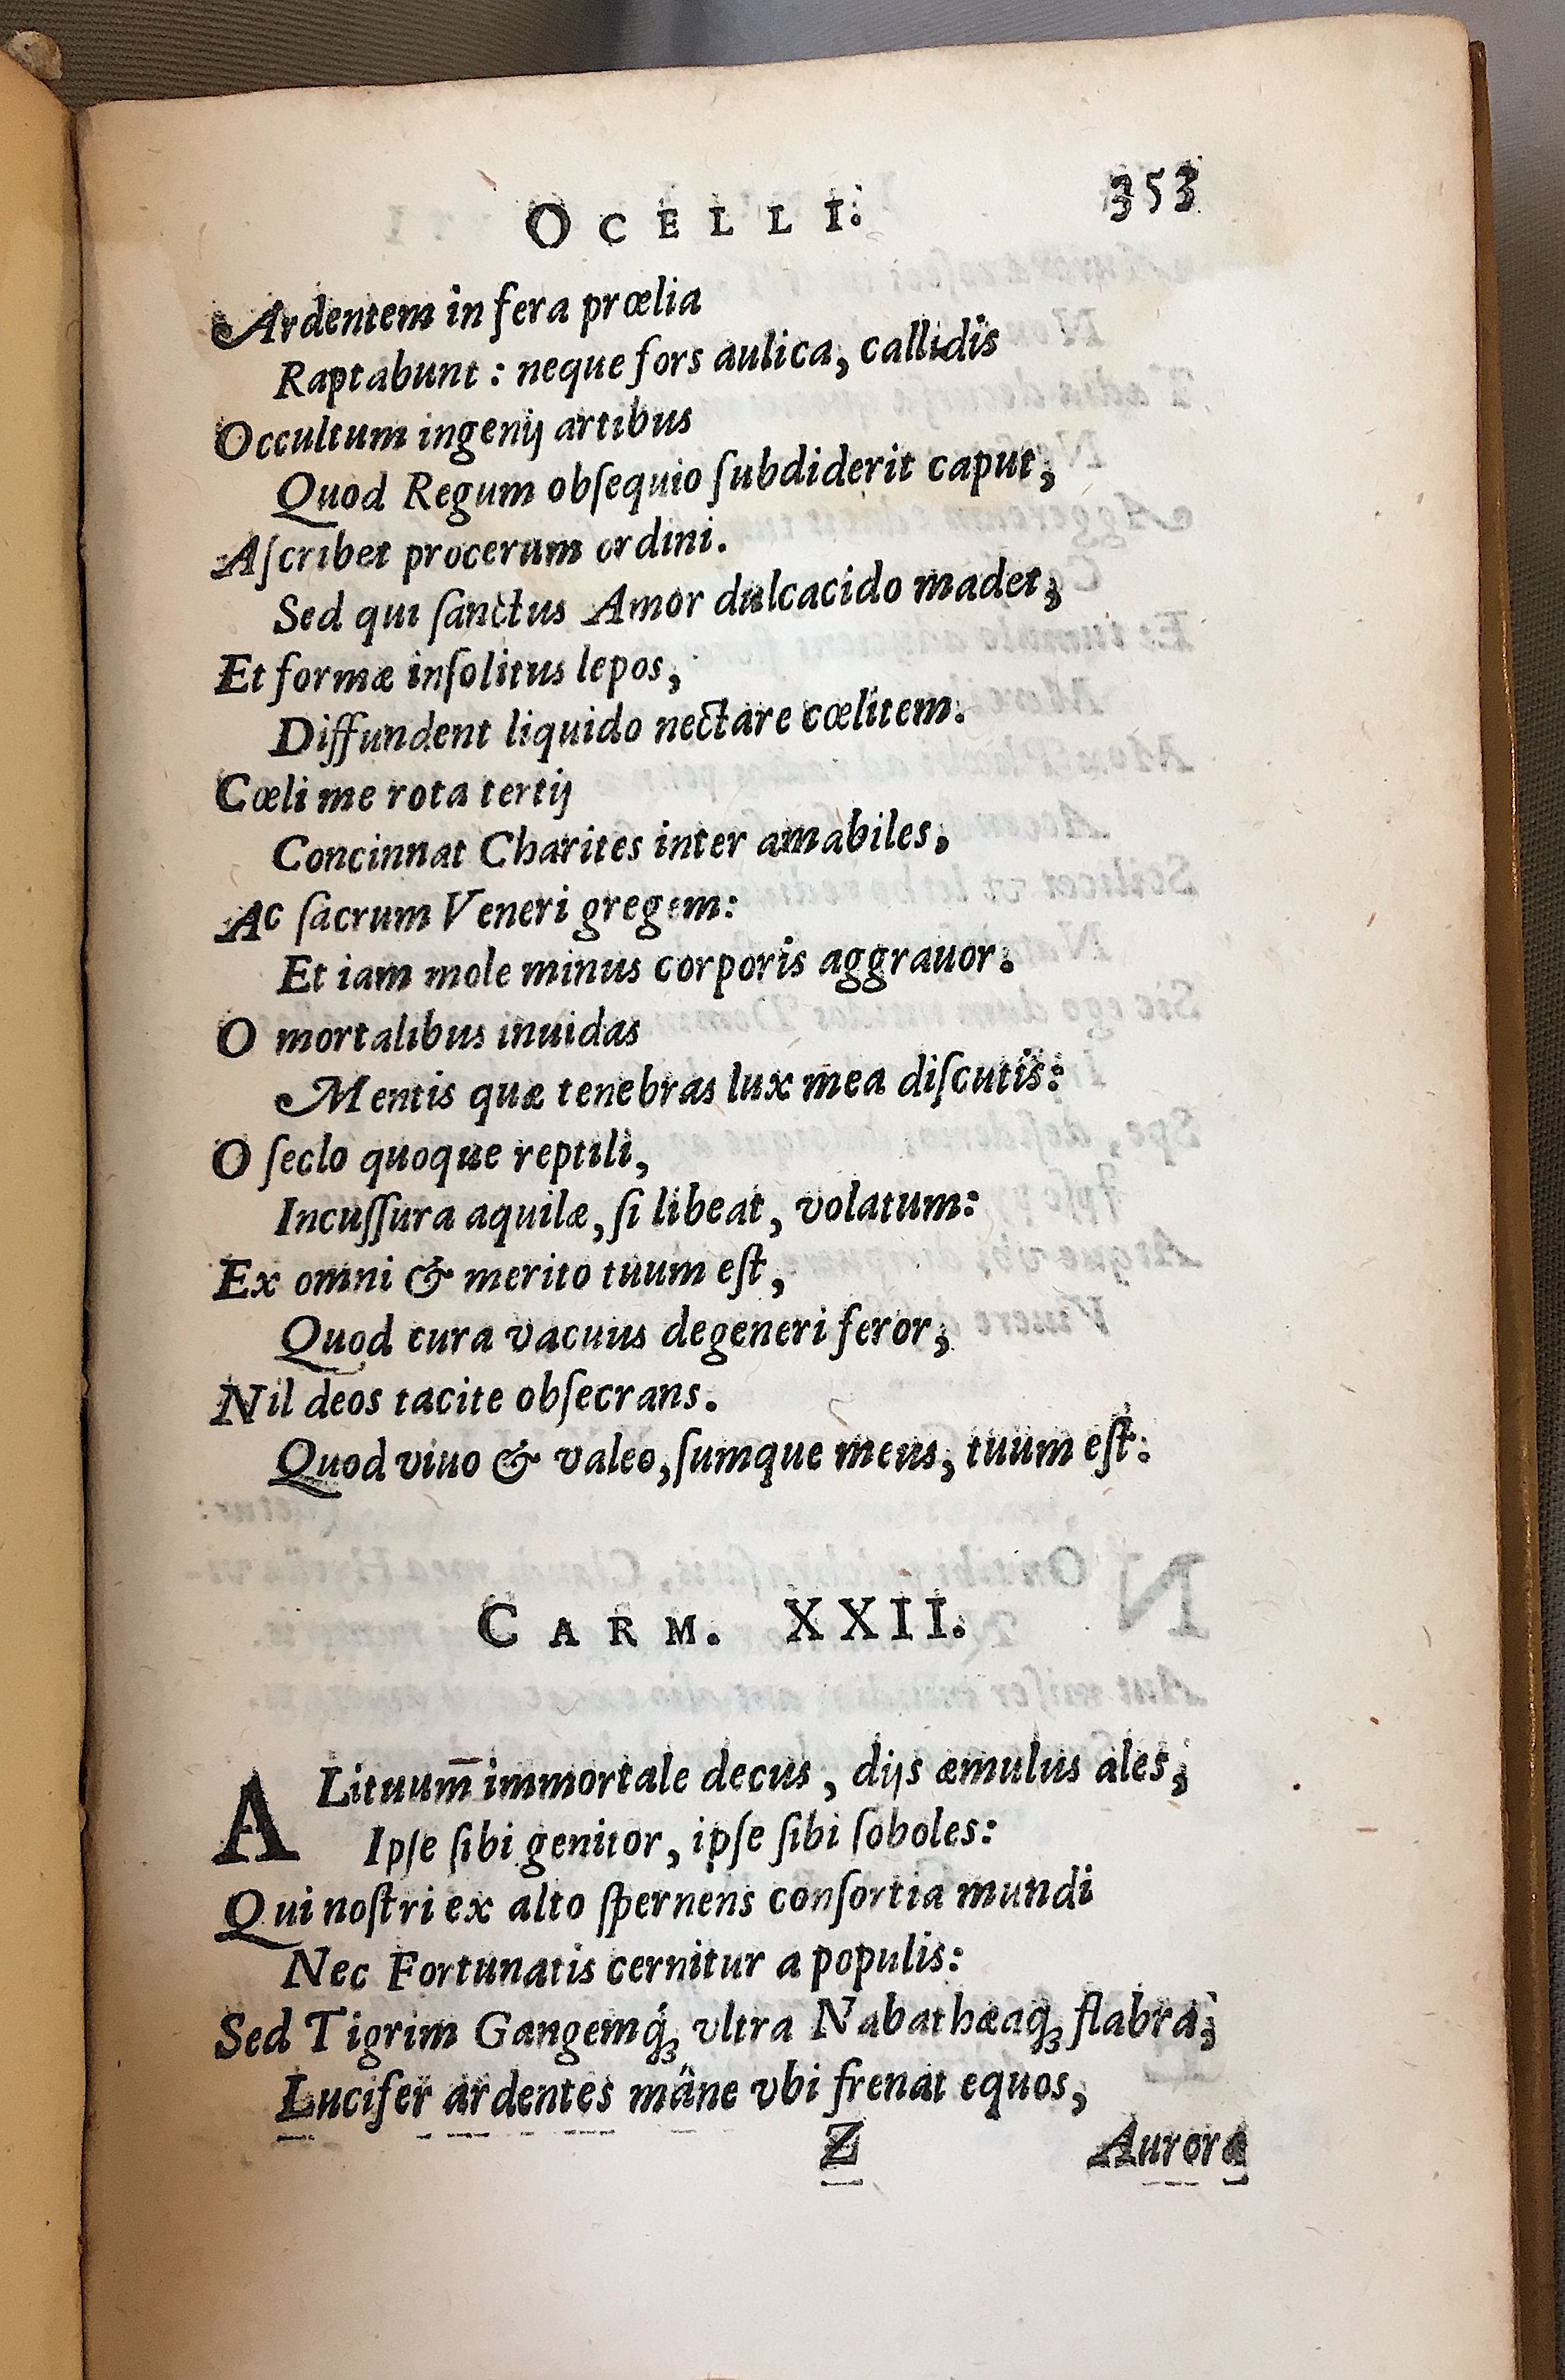 OCELLI. 353
Ardentem in fera prœlia
Raptabunt: neque fors aulica, callidis
Occultum ingenij artibus
Quod Regum obſequio ſubdiderit caput,
Aſcribet procerum ordini.
Sed qui ſanctus Amor dulcacido madet,
Et formæ inſolitus lepos,
Diffundent liquido nectare cœlitem.
Cœli me rota tertij
Concinnat Charites inter amabiles,
Ac ſacrum Veneri gregem:
Et iam mole minus corporis aggrauor.
O mortalibus inuidas
Mentis quæ tenebras lux mea diſcutis:
O ſeclo quoque reptili,
Incuſſura aquilæ, ſi libeat, volatum:
Ex omni & merito tuum eſt,
Quod cura vacuus degeneri feror,
Nil deos tacite obſecrans.
Quod viuo & valeo, ſumque meus, tuum eſt.
CARM. XXII.
ALituum̅ immortale decus, dijs æmulus ales,
Ipſe ſibi genitor, ipſe ſibi ſoboles:
Qui noſtri ex alto ſpernens conſortia mundi
Nec Fortunatis cernitur a populis:
Sed Tigrim Gangemq́ꝫ vltra Nabathæaq́ꝫ flabra,
Lucifer ardentes mâne vbi frenat equos,
Z Auroræ